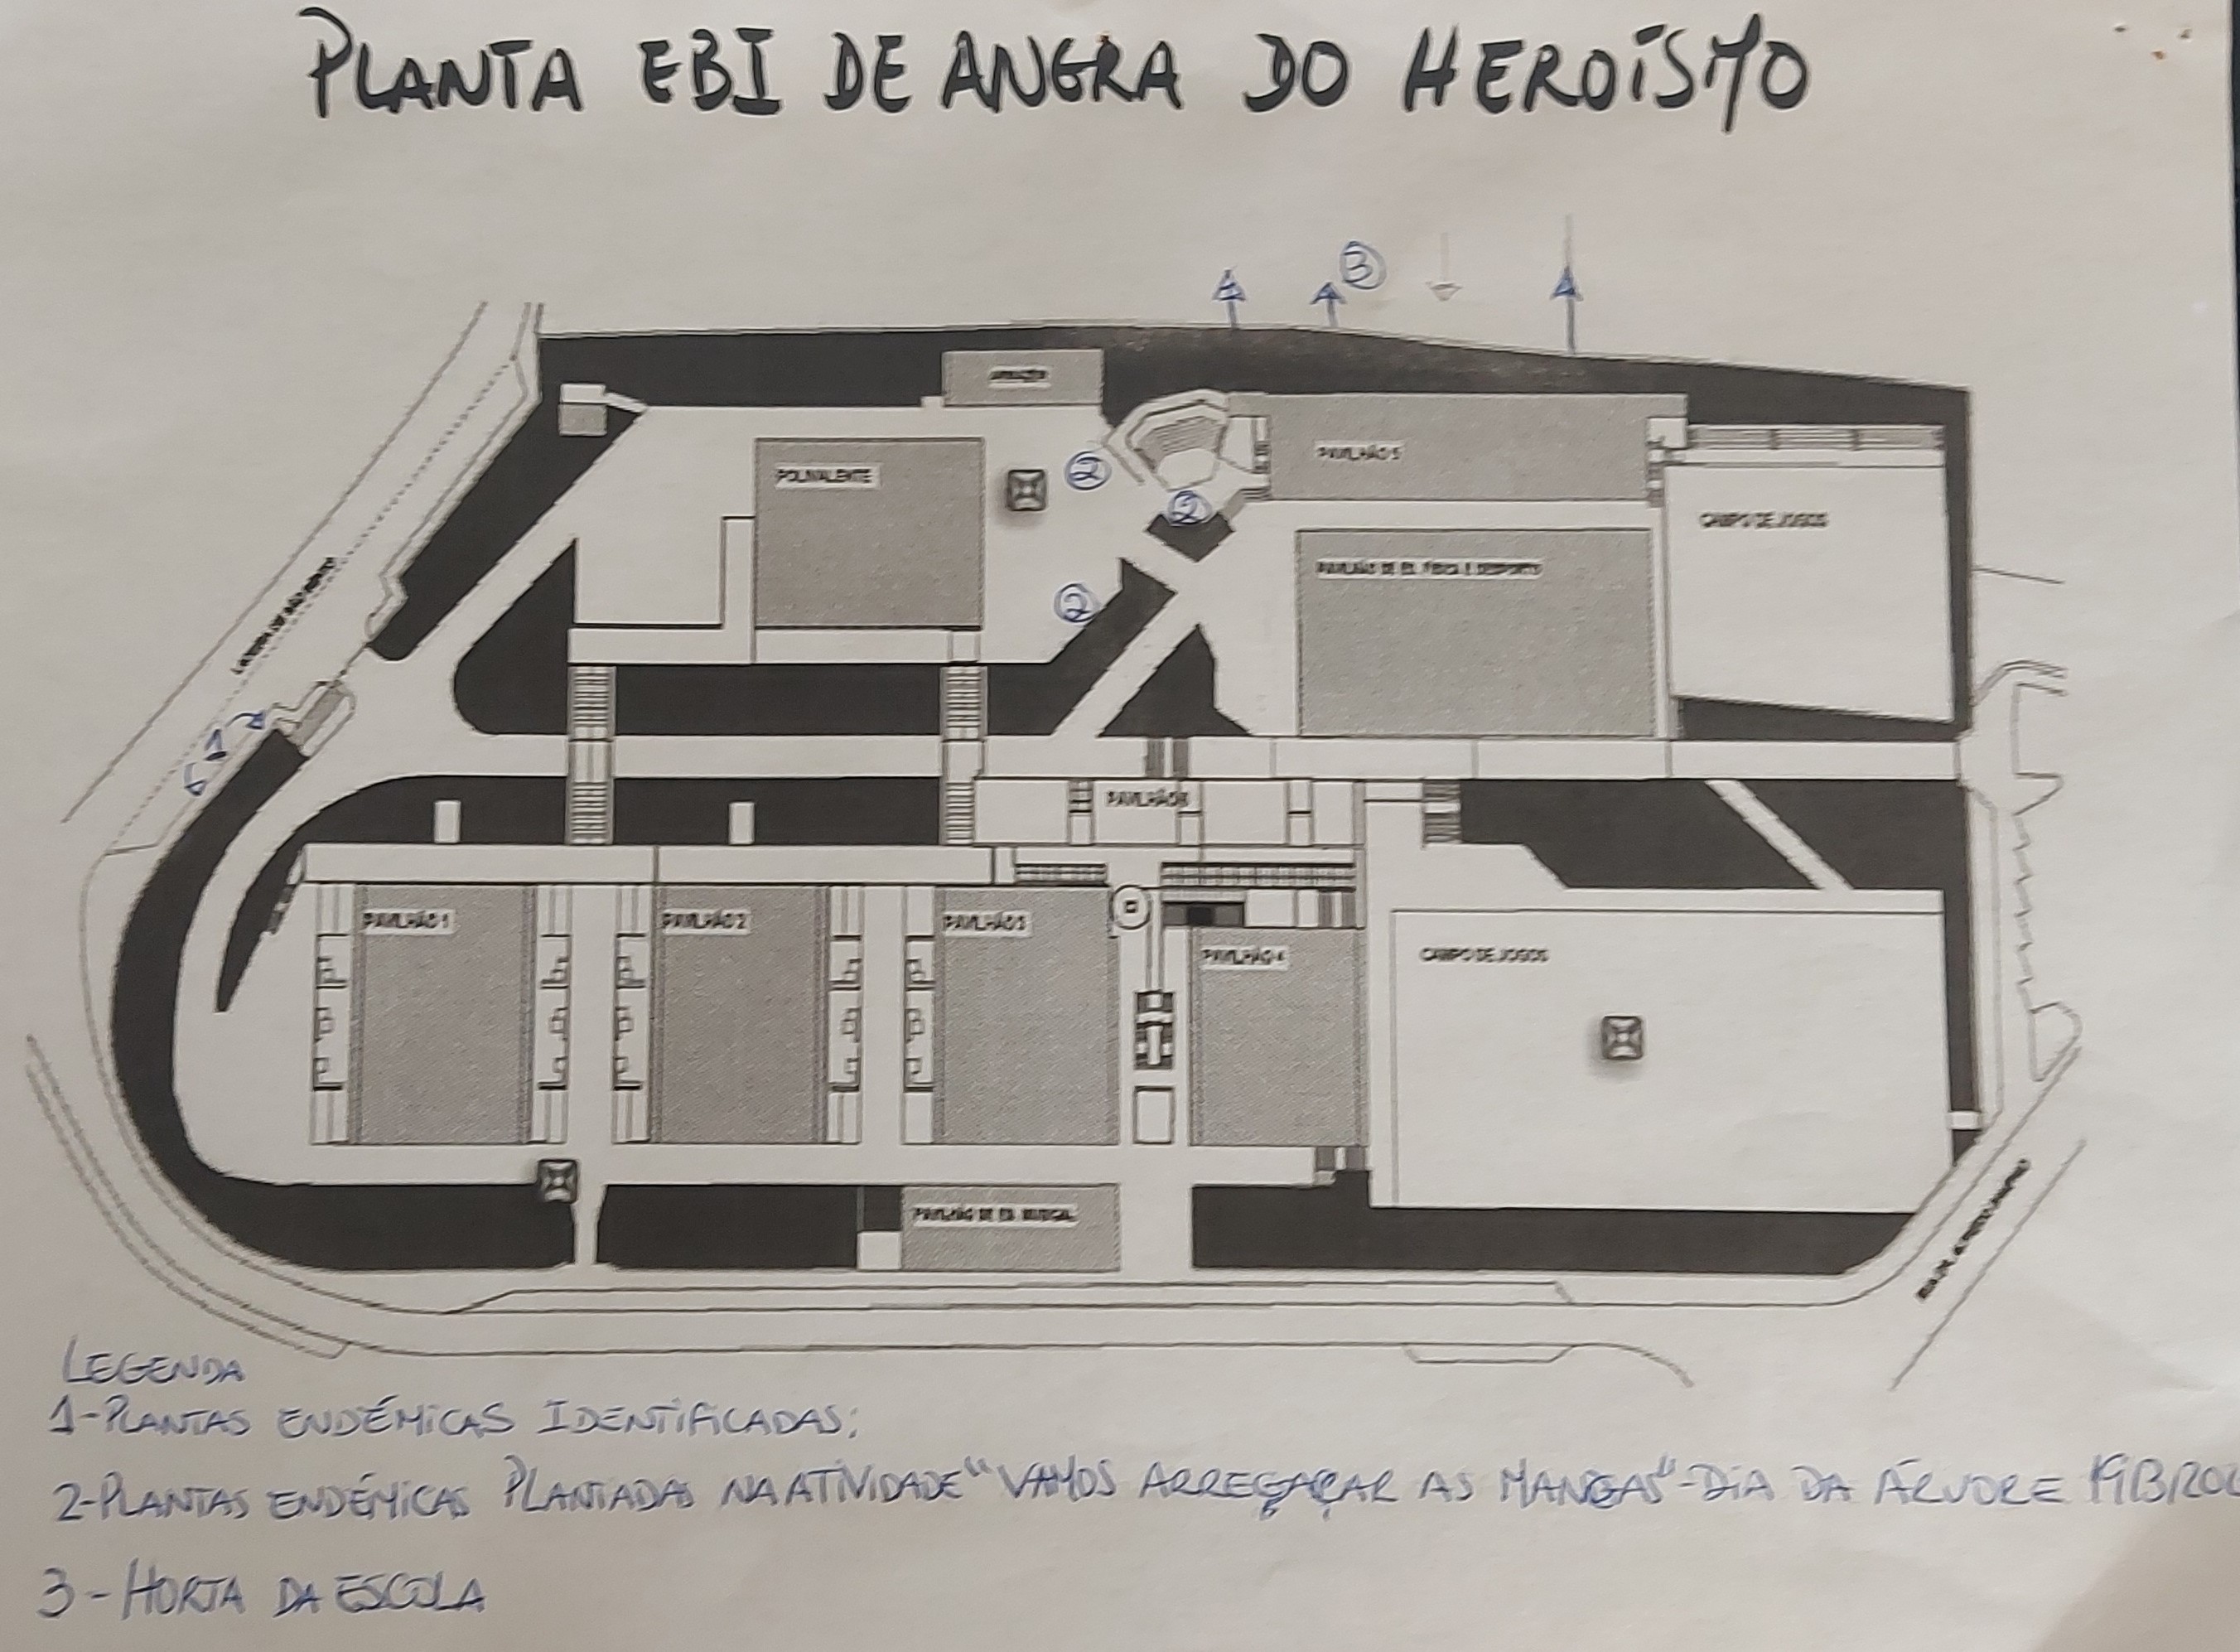 PLANTA EBI DE ANGRA DO HEROÍSMO
3
ARMAZÉM
POLIVALENTE
2
PAVILHÃO 5
2
CAMPO DE JOGOS
PAVILHÃO DE ED. FÍSICA E DESPORTO
2
1
PAVILHÃO 1
PAVILHÃO 2
PAVILHÃO 3
PAVILHÃO 4
CAMPO DE JOGOS
PAVILHÃO DE ED. MUSICAL
LEGENDA
1-PLANTAS ENDÉMICAS IDENTIFICADAS;
2-PLANTAS ENDÉMICAS PLANTADAS NA ATIVIDADE "VAMOS ARREGAÇAR AS MANGAS"-DIA DA ÁRVORE
3-HORTA DA ESCOLA